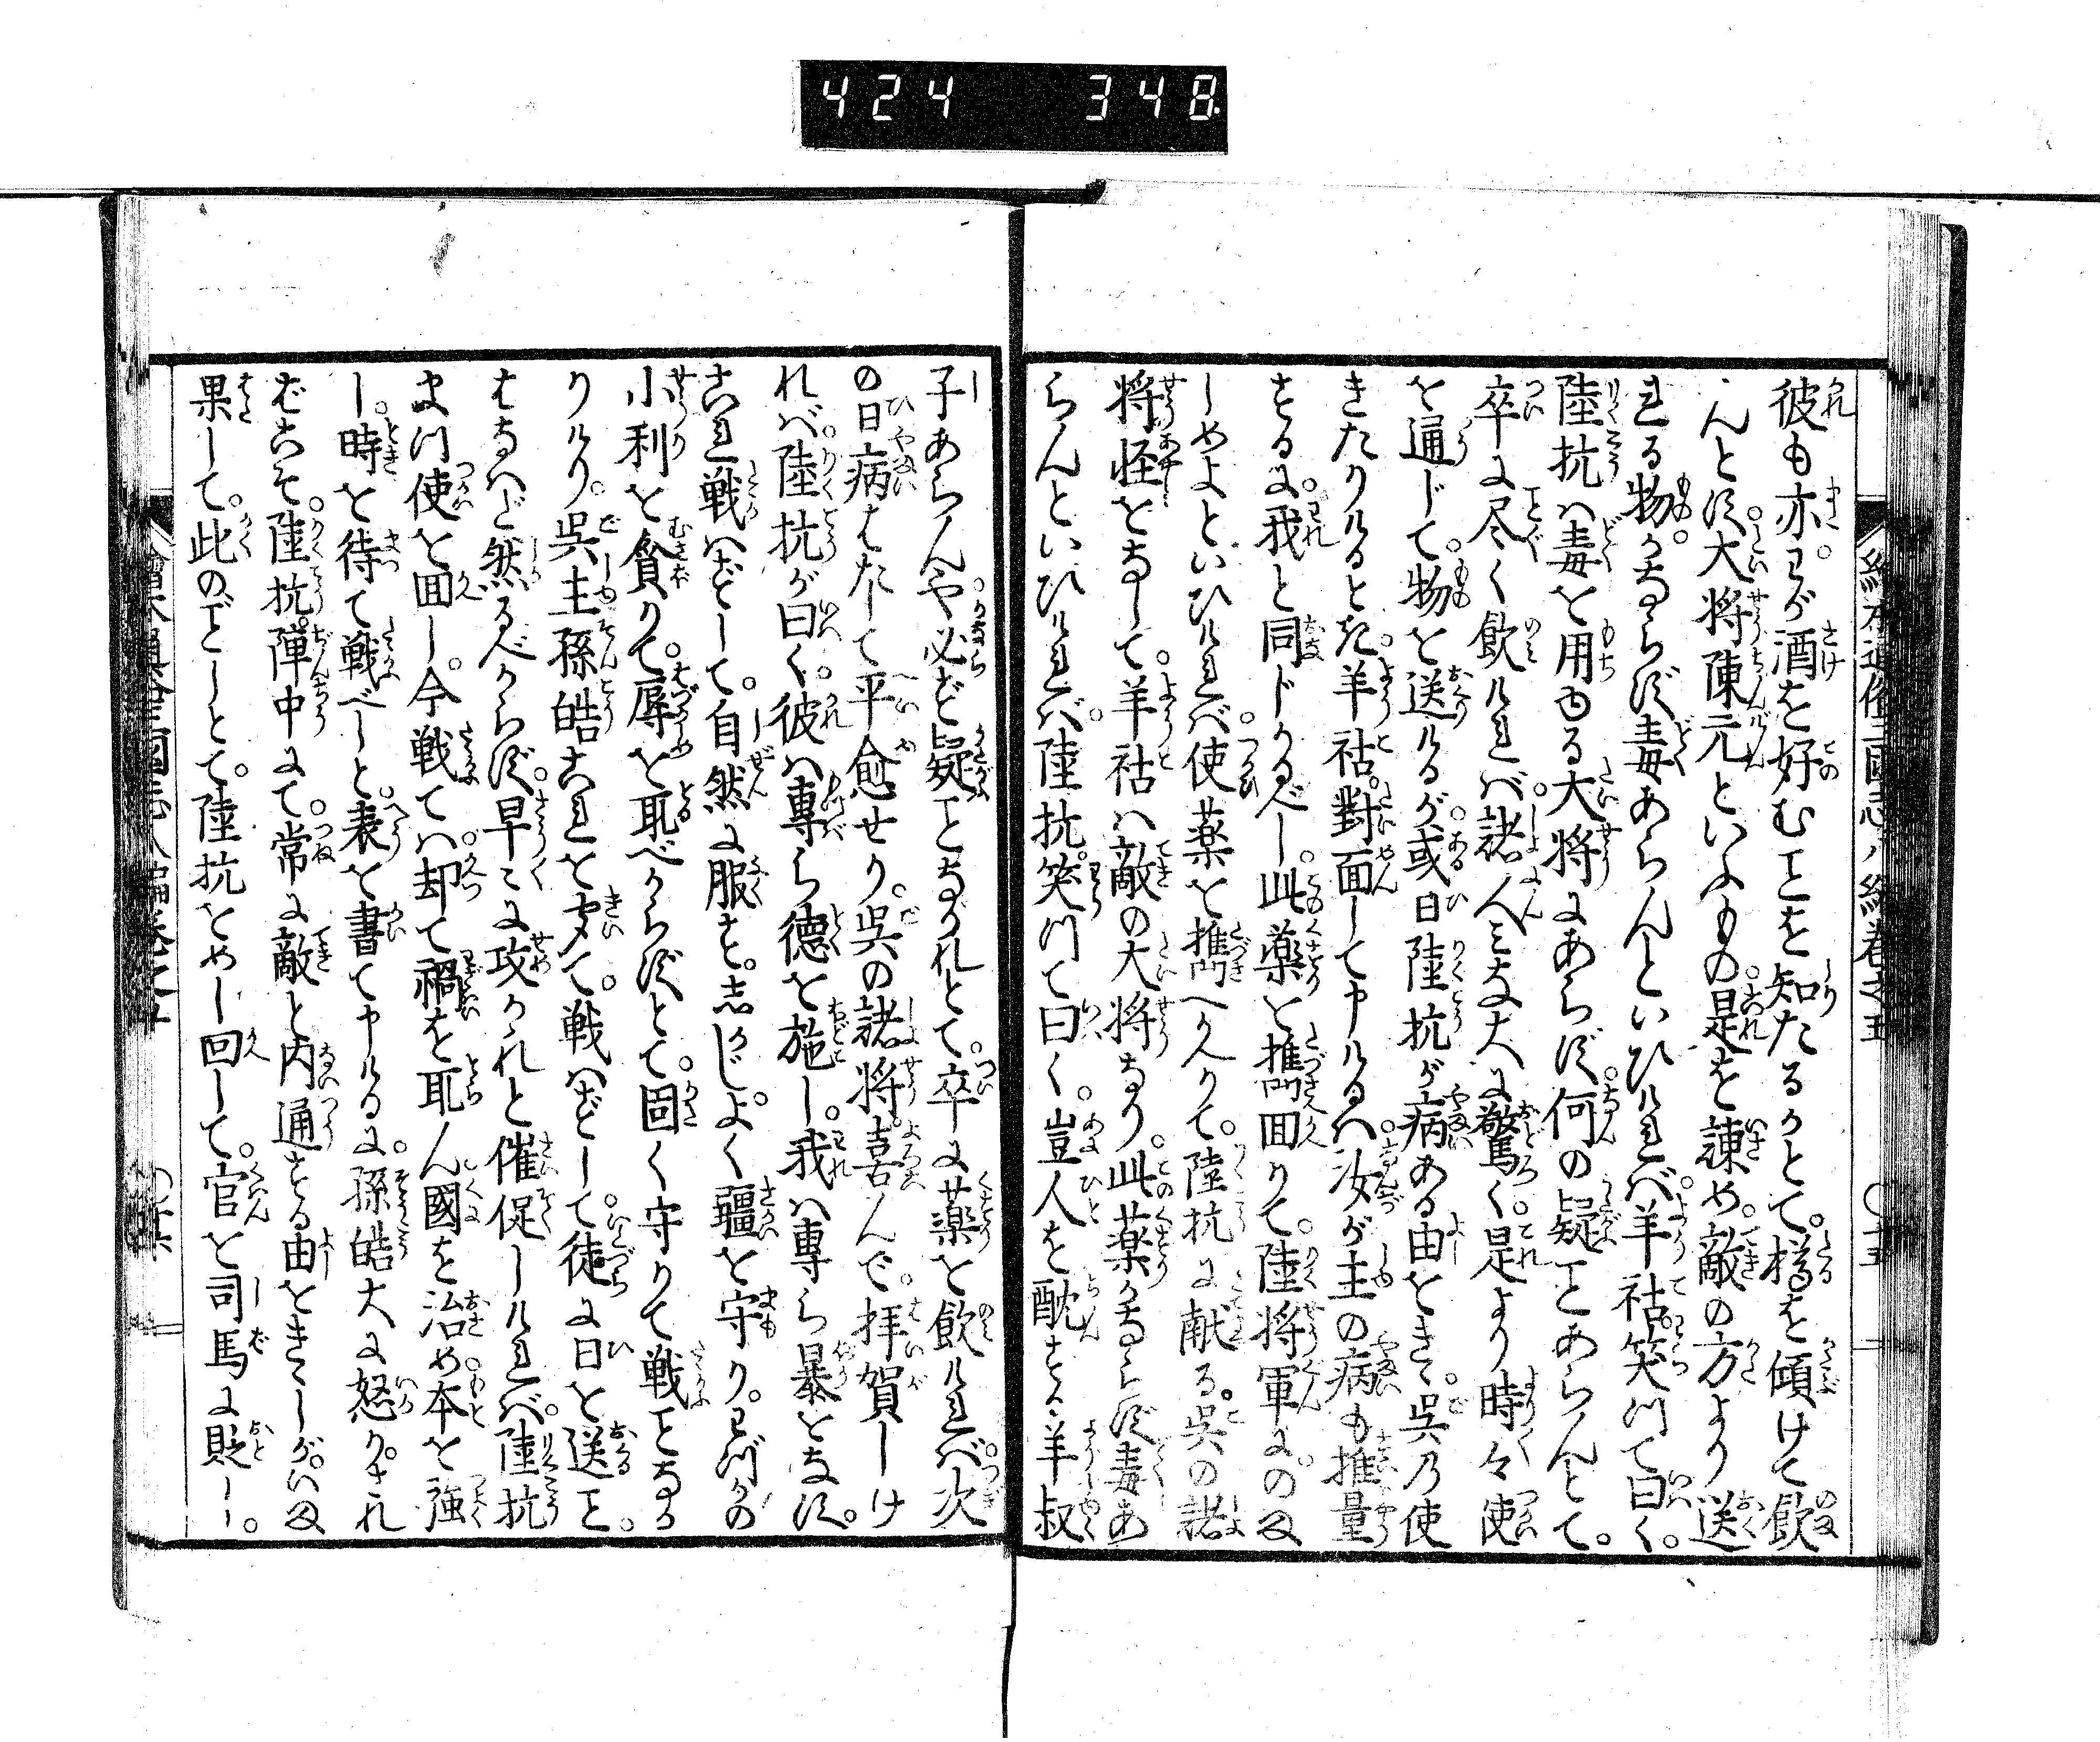 424 348
繪本通俗三國志八編卷之五 ○十五
彼も亦。わが酒を好むことを知たるかとて。樽を傾けて飲
んとす。大将陳元といふもの。是を諫め。敵の方より送
れる物。かならず毒あらんといひければ。羊祜。笑って曰く。
陸抗は毒を用ゆる大将にあらず。何の疑ことあらんとて。
卒に尽く飲ければ。諸人みな大に驚く。是より時々使
を通じて。物を送けるが。或日陸抗が病ある由をきゝ。呉乃使
きたりけるとき。羊祜。對面して申けるは。汝が主の病も推量
するに。我と同じかるべし。此薬を携回りて。陸将軍に。のま
しめよといひければ。使薬を携へかへりて。陸抗に献る。呉の諸
将怪をなして。羊祜は敵の大将なり。此薬かならず毒あ
らんといひければ。陸抗。笑って曰く。豈人を酖する羊叔
子あらんや。必ず疑ことなかれとて。卒に薬を飲ければ。次
の日病はたして平愈せり。呉の諸将。喜んで。拝賀しけ
れば。陸抗が曰く。彼は専ら徳を施し。我は専ら暴をなす。
これ戦はずして。自然に服す。志かじ。よく疆を守り。わづかの
小利を貪りて。辱を耻べからずとて。固く守りて戦ことなか
りけり。呉主孫皓これを聞て。戦はずして。徒に日を送こと。
はなはだ然るべからず。早々に攻かれと催促しければ。陸抗
まづ使を回し。今戦ては。却て禍を耴ん國を治め。本を強
し。時を待て戦べしと。表を書て申けるに。孫皓大に怒り。され
ばこそ。陸抗。陣中にて。常に敵と内通する由をきゝしが。いま
果して。此のごとしとて。陸抗をめし回して。官を司馬に貶し。